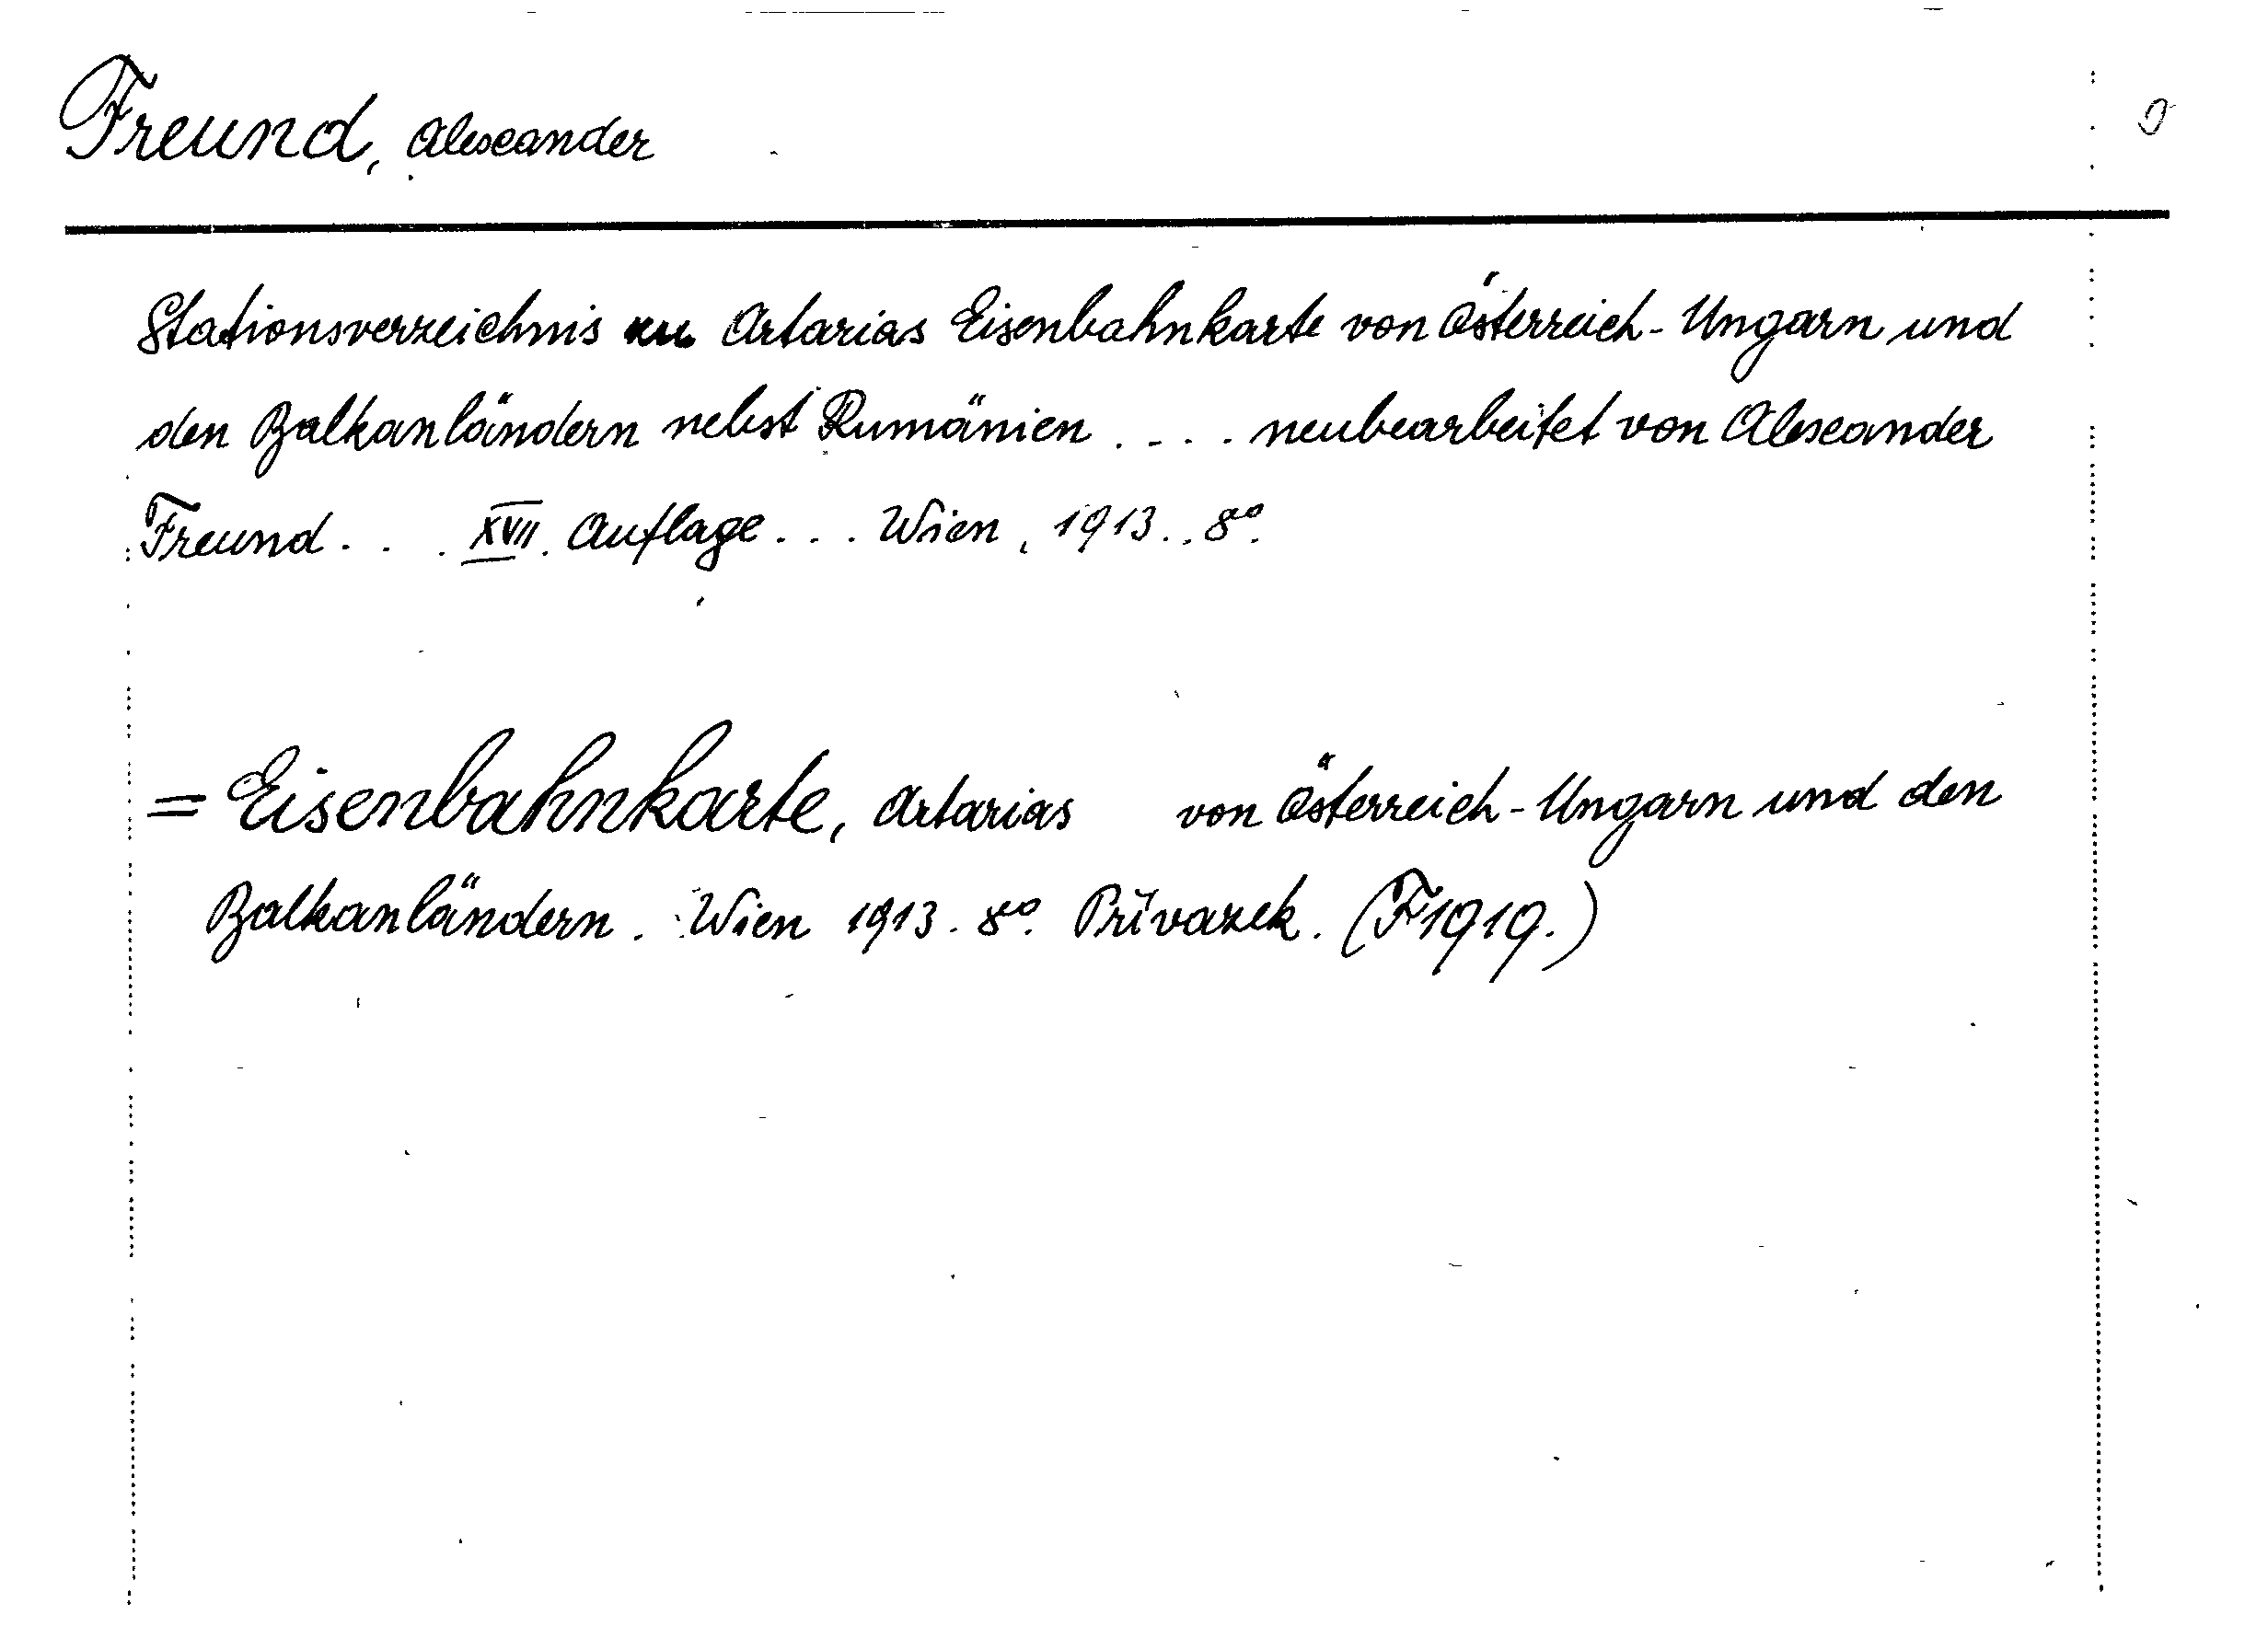 Freund, Alexander
Stationsverzeichnis zu Artarias Eisenbahnkarte von Österreich-Ungarn und
den Balkanländern nebst Rumänien .... neubearbeitet von Alexander
Freund... XVII. Auflage... Wien, 1913.. 8°.
= Eisenbahnkarte, Artarias von Österreich-Ungarn und den
Balkanländern. Wien 1913. 8°. Přivazek. (F1919.)